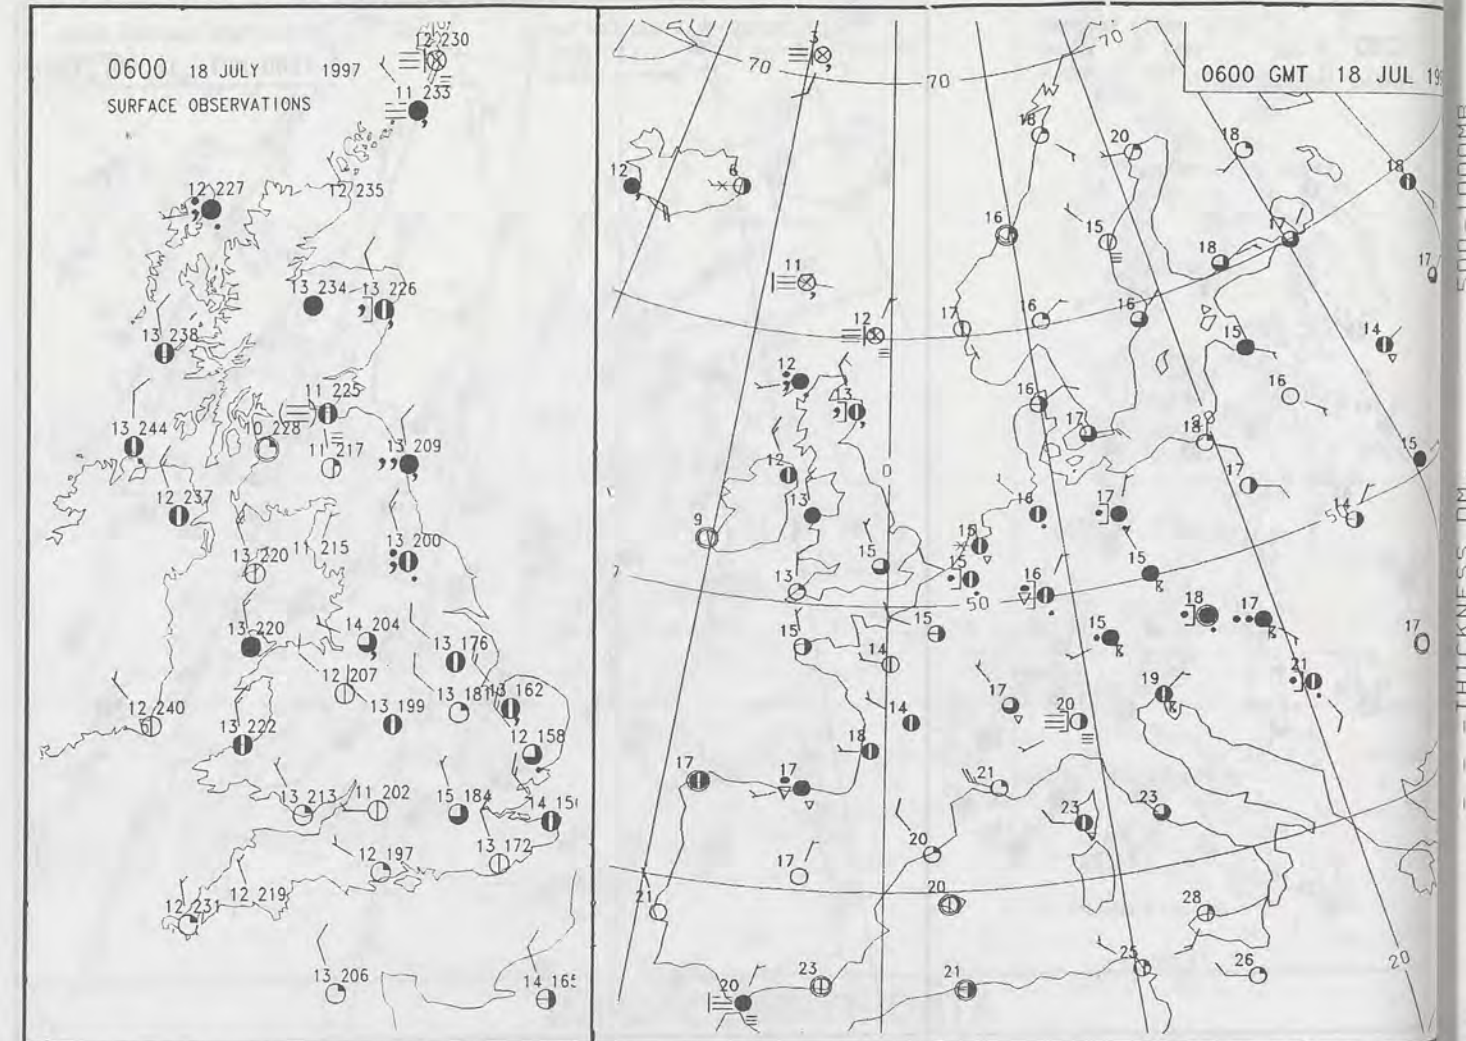 0600 18 JULY 1997
SURFACE OBSERVATIONS
12 230
11 233
12 227
12 235
13 234
13 226
13 238
11 225
13 244
10 228
11 217
13 209
12 237
13 220
11 215
13 200
13 220
14 204
13 176
12 207
13 181
13 162
12 240
13 222
13 199
12 158
13 213
11 202
15 184
14 15
13 172
12 197
12 219
12 231
13 206
14 165
0600 GMT 18 JUL 19
3
70
70
70
18
20
18
18
12
6
16
15
18
17
17
11
12
17
16
16
15
14
12
13
16
17
18
16
15
12
13
0
16
17
17
14
50
9
15
15
15
16
15
18
17
17
13
50
15
15
14
15
19
21
17
14
20
18
17
17
21
23
23
20
17
21
20
28
20
23
21
25
26
20
THICKNESS DM
500-1000MB